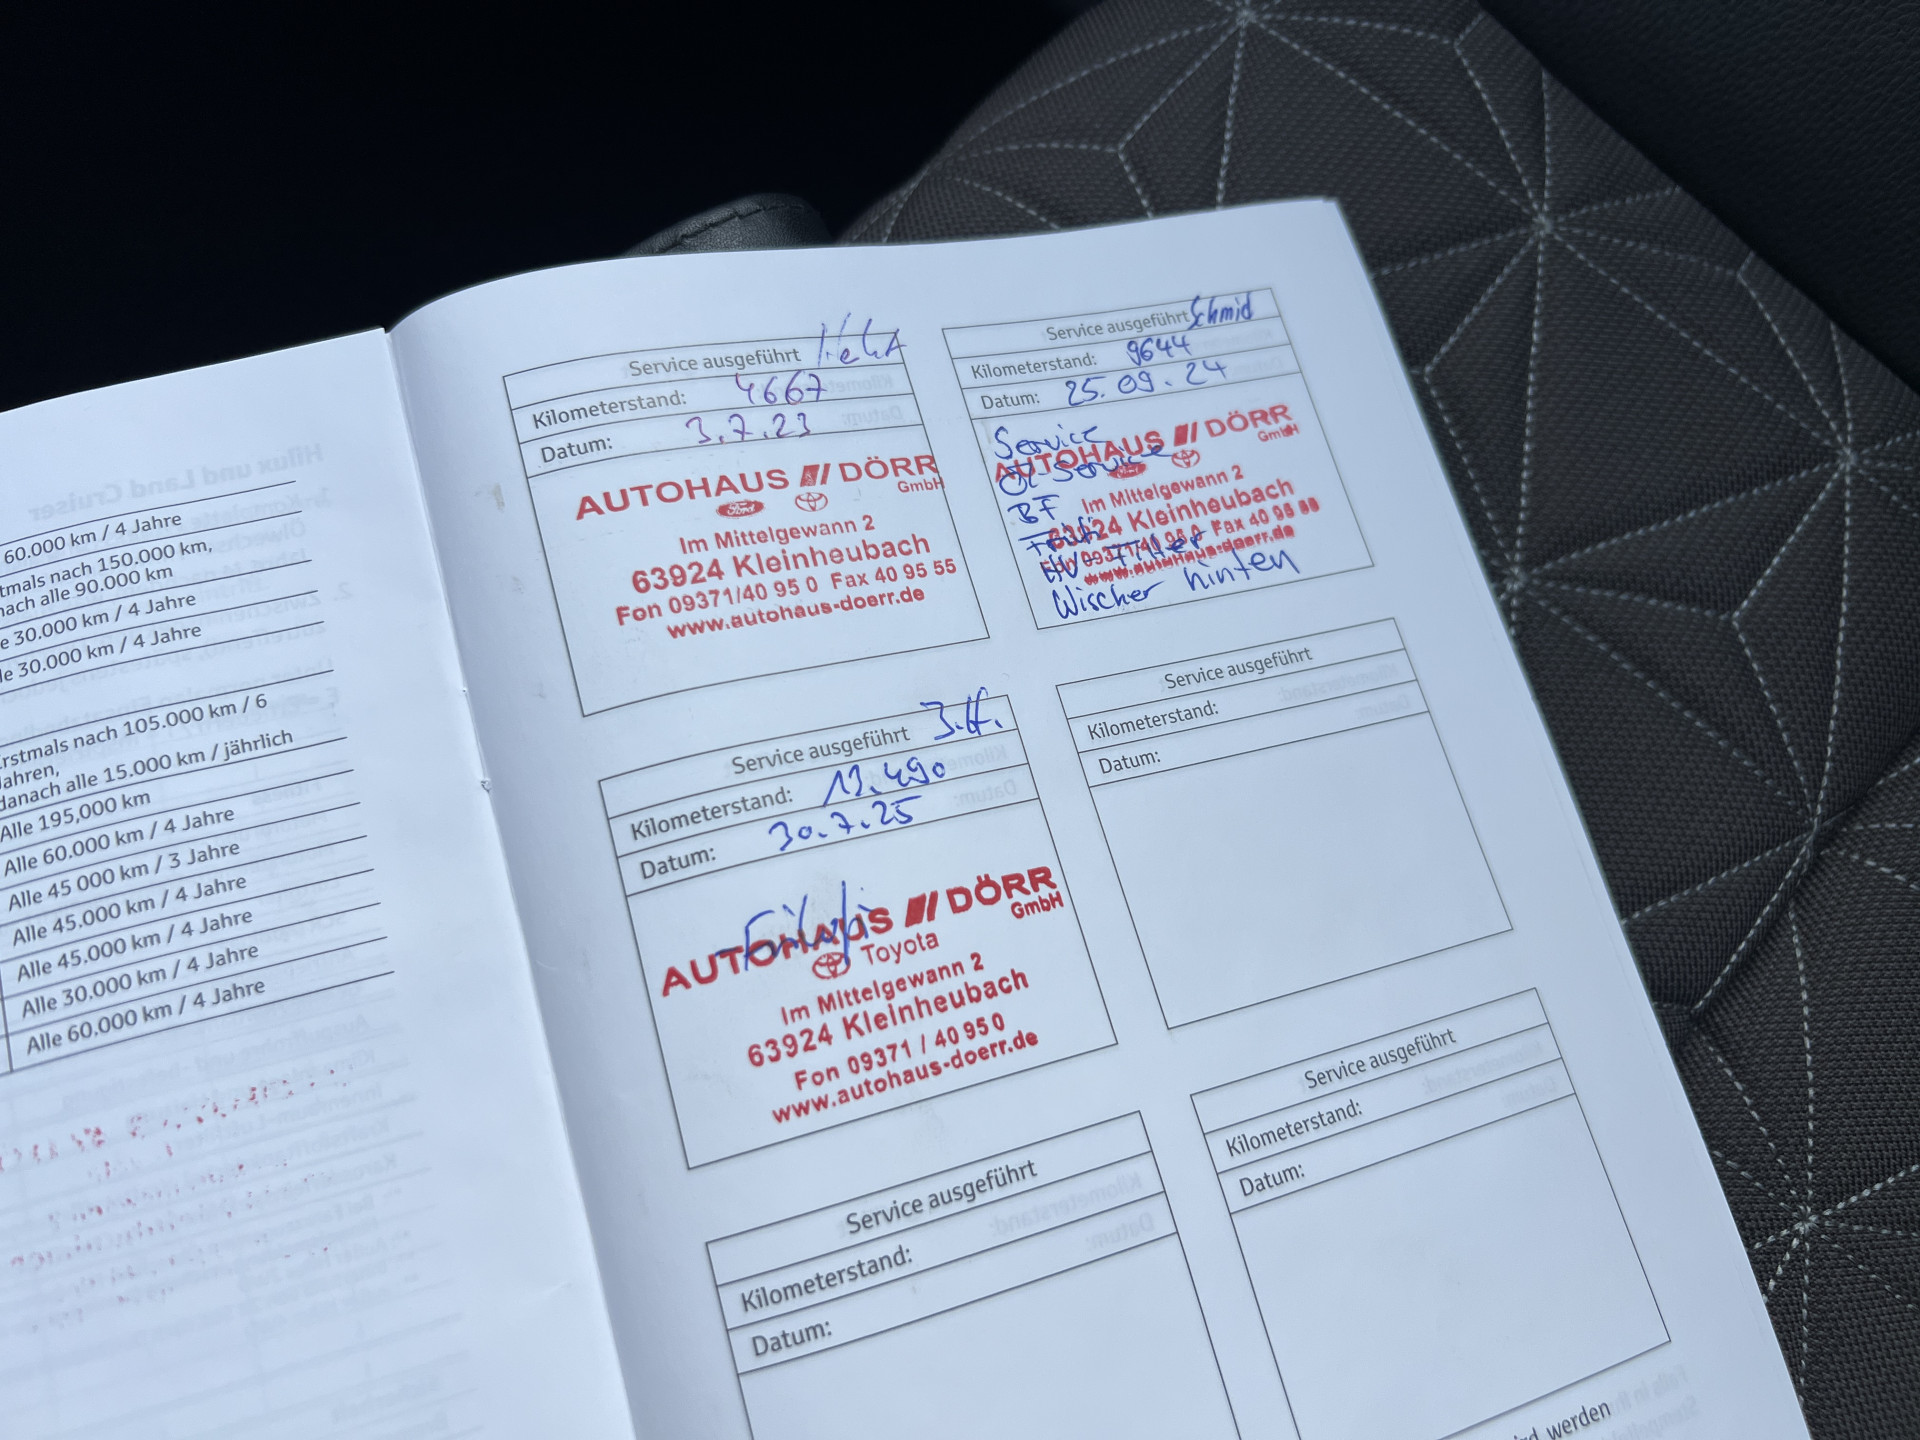 60.000 km / 4 Jahre
nach 150.000 km,
alle 90.000 km
30.000 km / 4 Jahre
30.000 km / 4 Jahre
nach 105.000 km / 6
danach alle 15.000 km / jährlich
Alle 195,000 km
Alle 60.000 km / 4 Jahre
Alle 45 000 km / 3 Jahre
Alle 45.000 km / 4 Jahre
Alle 45.000 km / 4 Jahre
Alle 30.000 km / 4 Jahre
Alle 60.000 km / 4 Jahre
Service ausgeführt
Kilometerstand: 4667
Datum: 3.7.23
AUTOHAUS DÖRR
GmbH
Ford
Im Mittelgewann 2
63924 Kleinheubach
Fon 09371/40 95 0 Fax 40 95 55
www.autohaus-doerr.de
Service ausgeführt Schmid
Kilometerstand: 9644
Datum: 25.09.24
Service
AUTOHAUS DÖRR
GmbH
Öl Service
Im Mittelgewann 2
BF
63924 Kleinheubach
Fon 09371/40 95 0 Fax 40 95
HV Filter
www.autohaus-doerr.de
Wischer hinten
Service ausgeführt J.H.
Kilometerstand: 13.490
Datum: 30.7.25
AUTOHAUS DÖRR
GmbH
Toyota
Im Mittelgewann 2
63924 Kleinheubach
Fon 09371 / 40 95 0
www.autohaus-doerr.de
Service ausgeführt
Kilometerstand:
Datum:
Service ausgeführt
Kilometerstand:
Datum:
Service ausgeführt
Kilometerstand:
Datum:
werden